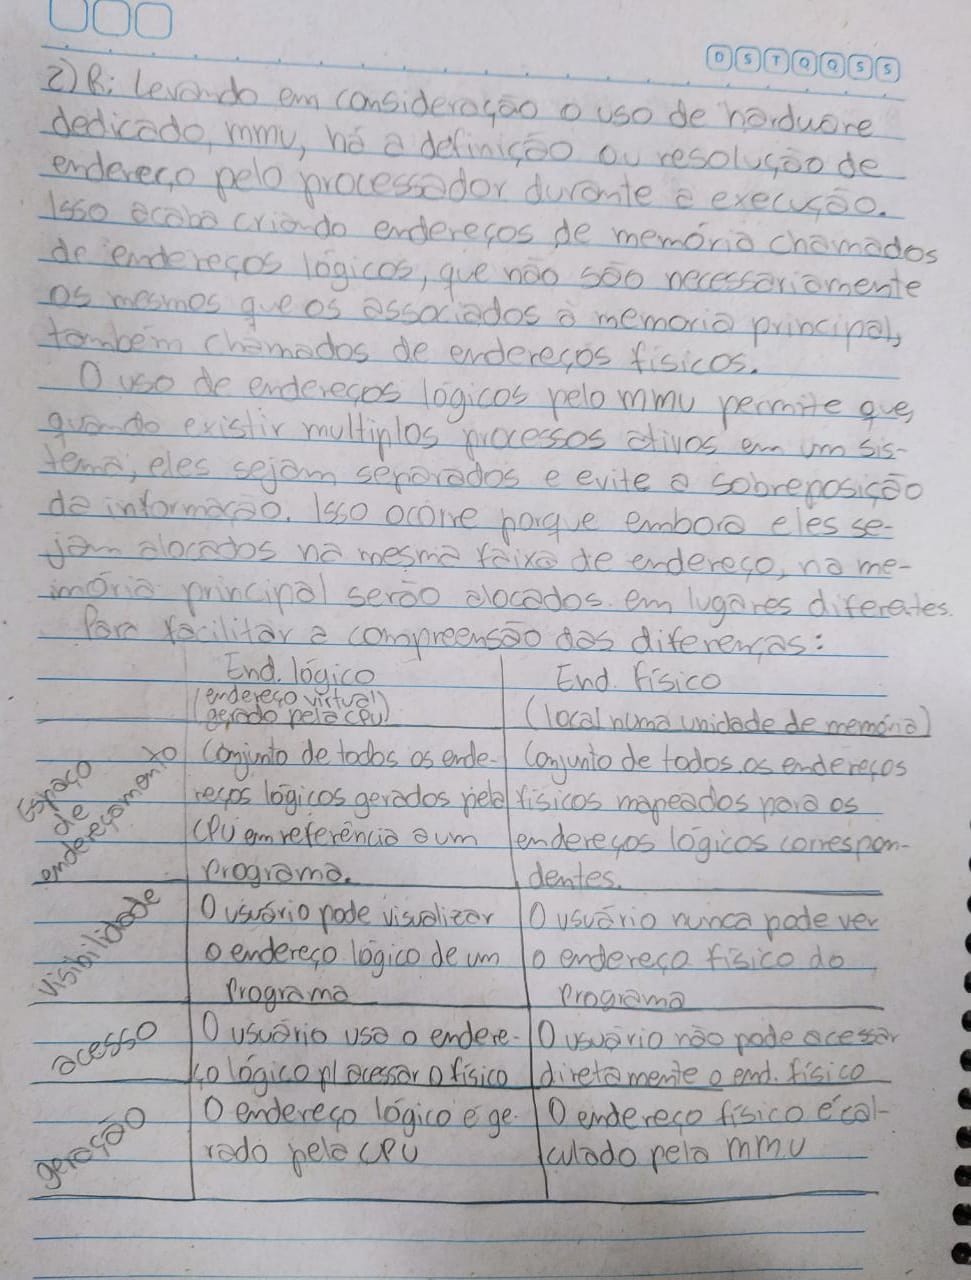 D S T Q Q S S
2) R: Levando em consideração o uso de harduare
dedicado, mmu, há a definição ou resolução de
endereço pelo processador durante a execução.
Isso acaba criando endereços de memória chamados
de endereços lógicos, que não são necessariamente
os mesmos que os associados à memoria principal,
também chamados de endereços físicos.
O uso de endereços lógicos pelo mmu permite que,
quando existir multiplos processos ativos em um sis-
tema, eles sejam separados e evite a sobreposição
da informação. Isso ocorre porque embora eles se-
jam alocados na mesma faixa de endereço, na me-
mória principal serão alocados em lugares diferentes.
Para facilitar a compreensão das diferenças:
End. lógico
(endereço virtual
gerado pela CPU)
End. Físico
(local numa unidade de memória)
Espaço
de
endereçamento
Conjunto de todos os ende-
reços lógicos gerados pela
CPU em referência a um
programa.
Conjunto de todos os endereços
físicos mapeados para os
endereços lógicos correspon-
dentes.
Visibilidade
O usuário pode visualizar
o endereço lógico de um
Programa
O usuário nunca pode ver
o endereço físico do
Programa
acesso
O usuário usa o endere-
ço lógico p/ acessar o físico
O usuário não pode acessar
diretamente o end. físico
geração
O endereço lógico é ge-
rado pela CPU
O endereço físico é cal-
culado pela mmu